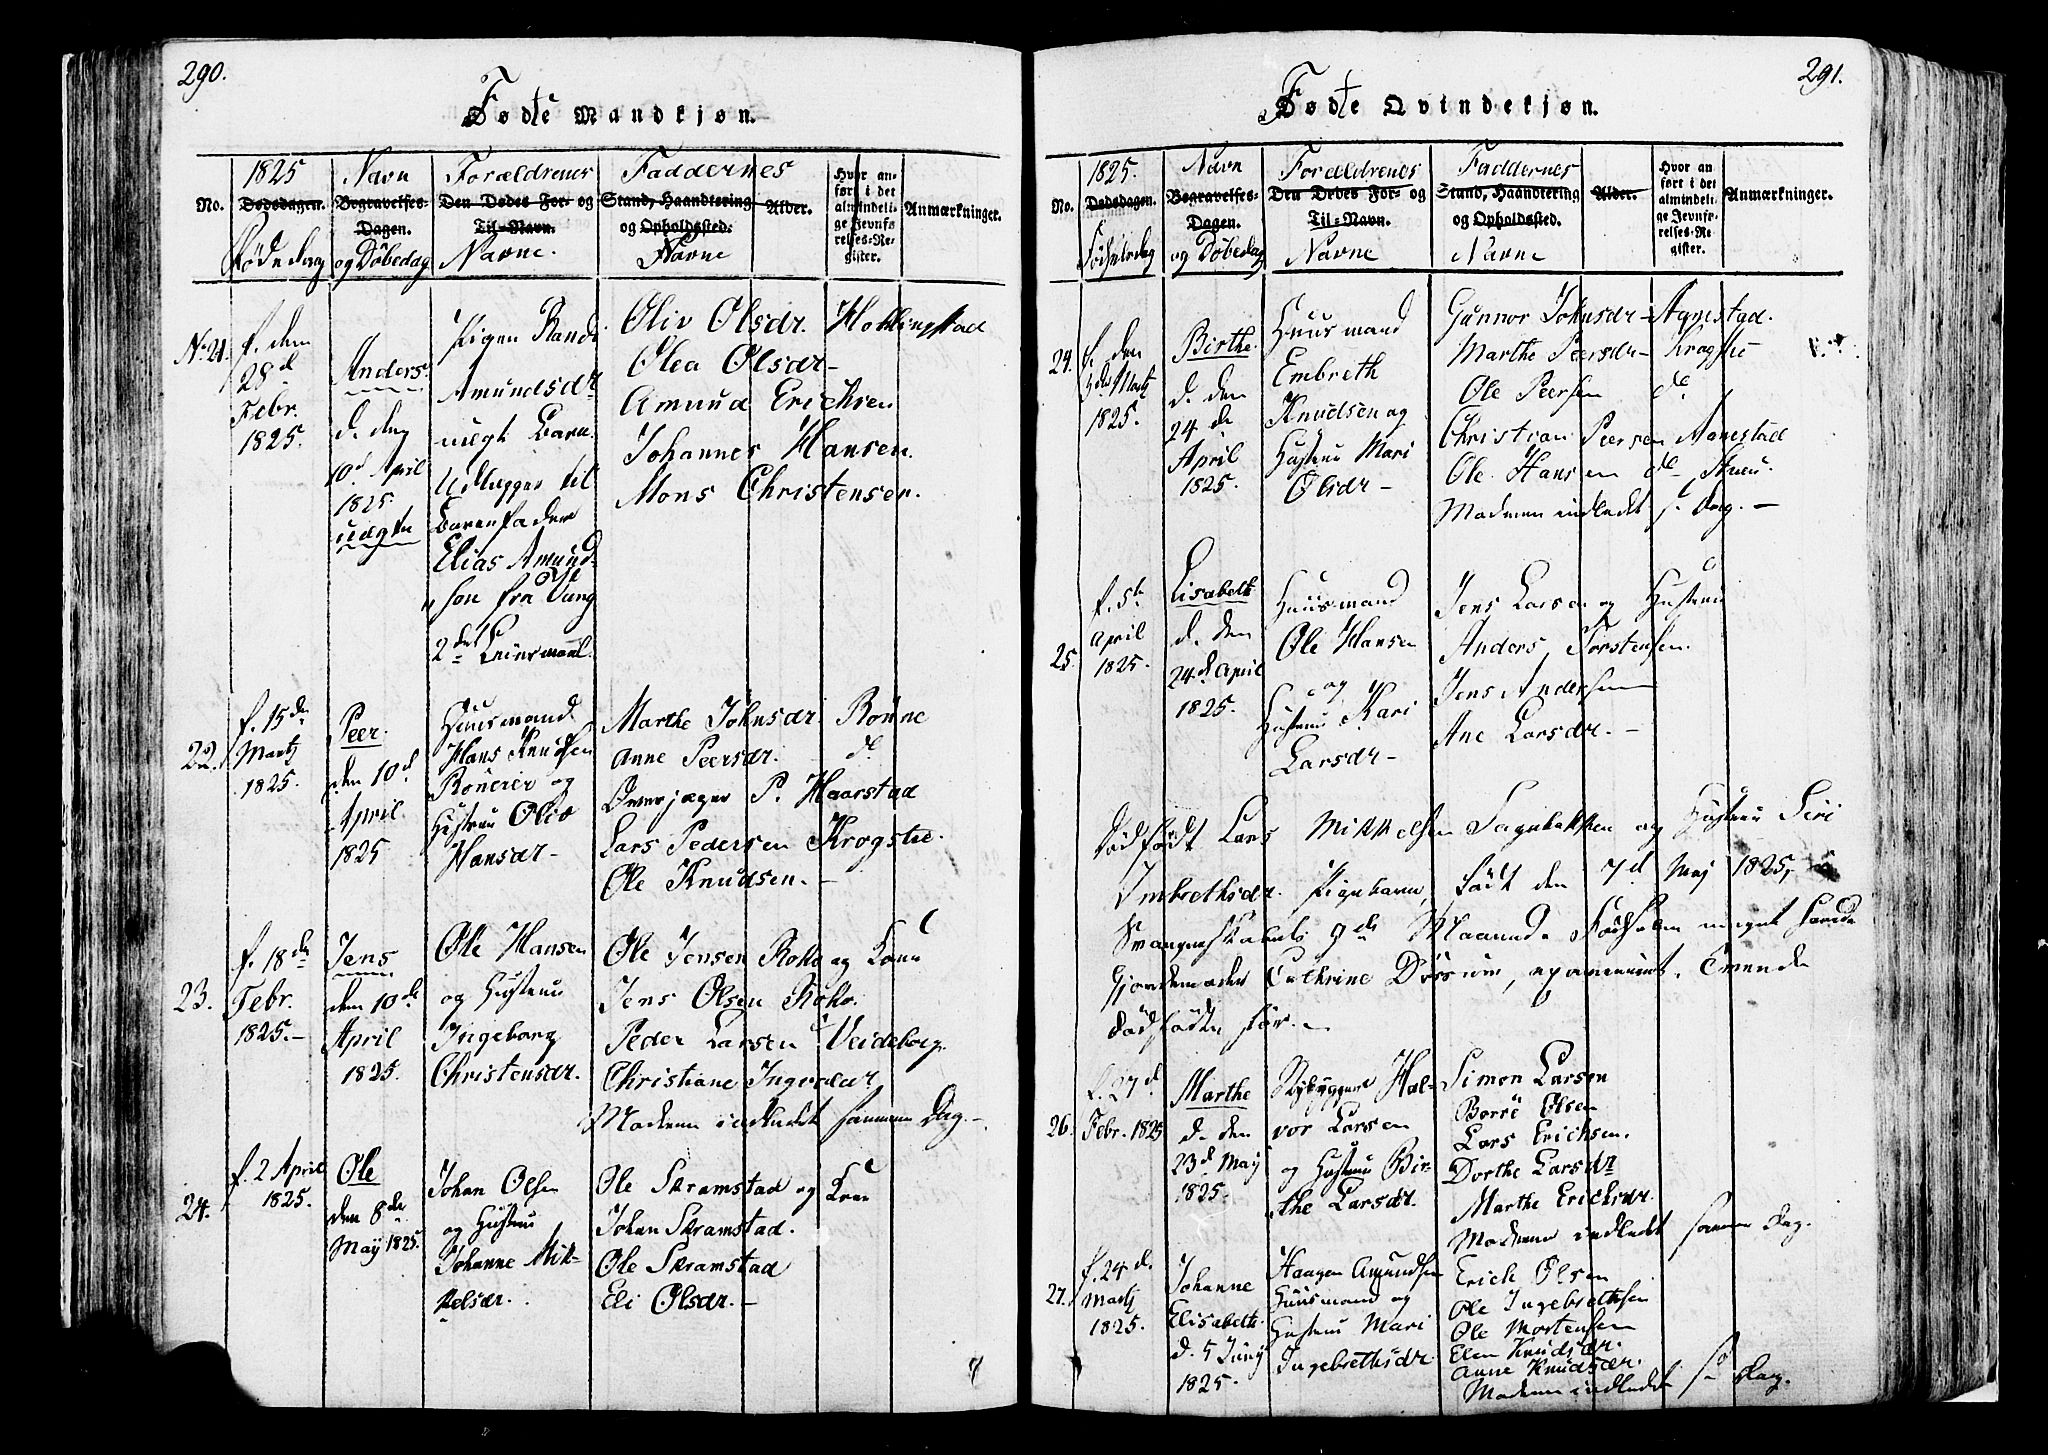 290.
Føde Mandkjøn.
No.
1825
Dødsdagen.
Føde dag
Navn
Begravelses-
Dagen.
og Døbedag
Forældrenes
Den Dødes For- og
Til-Navn.
Navne.
Faddernes
Stand, Haandtering
og Opholdssted.
Navne
Alder.
Hvor an-
ført i det
almindeli-
ge Jevnfø
relses-Re-
gister.
Anmærkninger.
No 21.
f. den
28d
Febr.
1825.
Anders
d. dag
10d April
1825
uægte
Pigen Randi
Amundsdr
uægt Barn.
Udlægges til
Barnefader
Elias Amund-
son fra
2det Leiermaal.
Oliv Olsdr. Hoklingstad
Olea Olsdr-
Amund Erichsen
Johannes Hansen.
Mons Christensen.
22.
f. 15de
Martz
1825.
Peer.
den 10d
April.
1825
Huusmand
Hans Knudsen
Röneier og
Hustru Olia
Hansdr-
Marthe Johnsdr. Rönne
Anne Peersdr. de
Overjæger P. Haarstad
Lars Pedersen Krogstie.
Ole Knudsen. -
23.
f. 18de
Febr.
1825.-
Jens
den 10de
April
1825.
Ole Hansen
og Hustru
Ingeborg
Christensdr.
Ole Jensen Roko og Kone
Jens Olsen Roko.
Peder Larsen Veideborg.
Christiane Ingvoldr.
Moderen indledet sammen Dag.-
24.
f. 2 April
1825.
Ole
den 8de
May 1825.
Johan Olsen
og Hustru
Johanne Mik-
kelsdr.
Ole Skramstad og Kone
Johan Skramstad.
Ole Skramstad
Eli Olsdr.-
291.
Føde Qvindekjøn.
No.
1825.
Dødsdagen.
Fødselsdag
Navn
Begravelses-
Dagen.
og Døbedag
Forældrenes
Den Dødes For- og
Til-Navn.
Navne
Faddernes
Stand, Haandtering
og Opholdssted.
Navne
Alder.
Hvor an
ført i det
almindeli-
ge Jevnfø-
relses-Re
gister.
Anmærkninger.
24.
f. den
3de Martz
1825.
Birthe.
d. den
24 de
April
1825.
Huusmand
Embreth
Knudsen og
Hustru Mari
Olsdr-
Gunnor Johnsdr- Agnestad.
Marthe Peersdr- Krogstie
Ole Peersen de
Christian Peersen Aanestad
Ole Hansen de
Moderen indledet s. Dag.-
25.
f. 5te
April
1825.
Lisabeth
d. den
24d April
1825.
Huusmand
Ole Hansen
og
Hustru Kari
Larsdr-
Jens Larsen og Hustru
Anders Torstensen.
Jens Andersen
Ane Larsdr.-
Dødfødt Lars Mikkelsen Sagbakken og Hustru Siri
Imbrethsdr. Pigebarn, født den 7d Maj 1825,
Svangerskabets 9de Maaned. Fødselen meget haarde
Gjordemoder Cathrine Dössrün, examineret. Tvende
Dødfødte før.-
26.
f. 27d
Febr. 1825
Marthe
d. den
23d May
1825.
Nybygger Hal-
vor Larsen
og Hustru Bir-
the Larsdr.
Simon Larsen
Borre Olsen
Lars Erichsen.
Dorthe Larsdr
Marthe Erichsdr.
Moderen indledet sammen Dag.
27.
f. 24d.
Martz
1825.
Johanne
Elisabeth.
d. 5 Juny
1825.
Haagen Amundsen
Huusmand og
Hustru Mari
Ingebrethsdr
Erich Olsen
Ole Ingebrethsen
Ole Mortensen
Elen Knudsdr.
Anne Knudsdr.
Moderen indledet s. Dag.